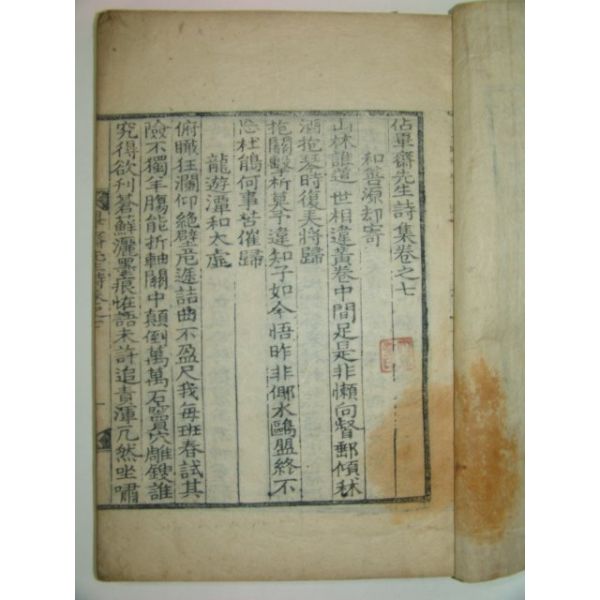 佔畢齋先生詩集卷之七
和盤源却寄
山林誰道世相違黃卷中間足是非懶向督郵傾秫
酒抱琴時復芙將歸
抱關擊柝莫予違知子如今悟昨非鄉水鷗盟終不
忘杜鵑何事苦催歸
龍遊潭和太虛
俯瞰狂瀾仰絶壁危途詰曲不盈尺我每班春試其
險不獨羊膓能折軸關中顛倒萬萬石竇穴雕鎪誰
究得欲利蒼蘚灑墨痕恠語未許追責渾兀然坐嘯